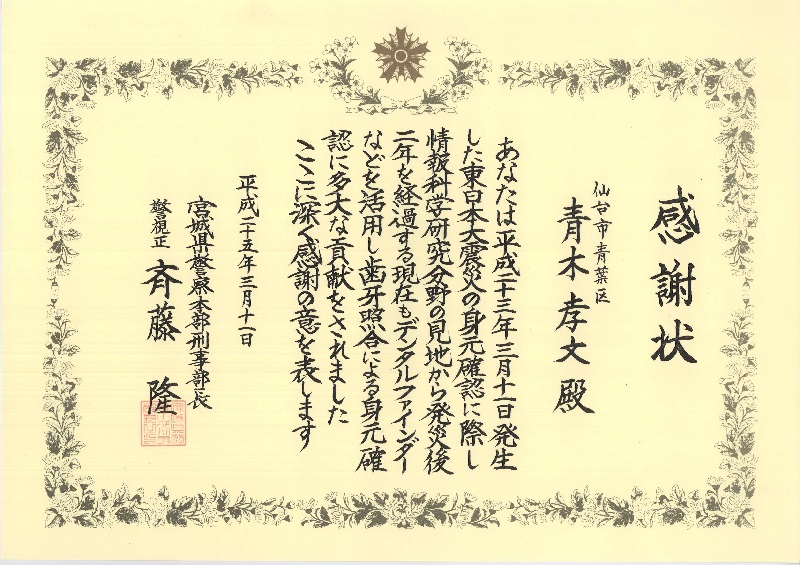 感謝状
仙台市青葉区
青木孝文殿
あなたは平成二十三年三月十一日発生
した東日本大震災の身元確認に際し
情報科学研究分野の見地から発災後
二年を経過する現在もデンタルファインダー
などを活用し歯牙照合による身元確
認に多大な貢献をされました
ここに深く感謝の意を表します
平成二十五年三月十一日
宮城県警察本部刑事部長
警視正 斉藤隆